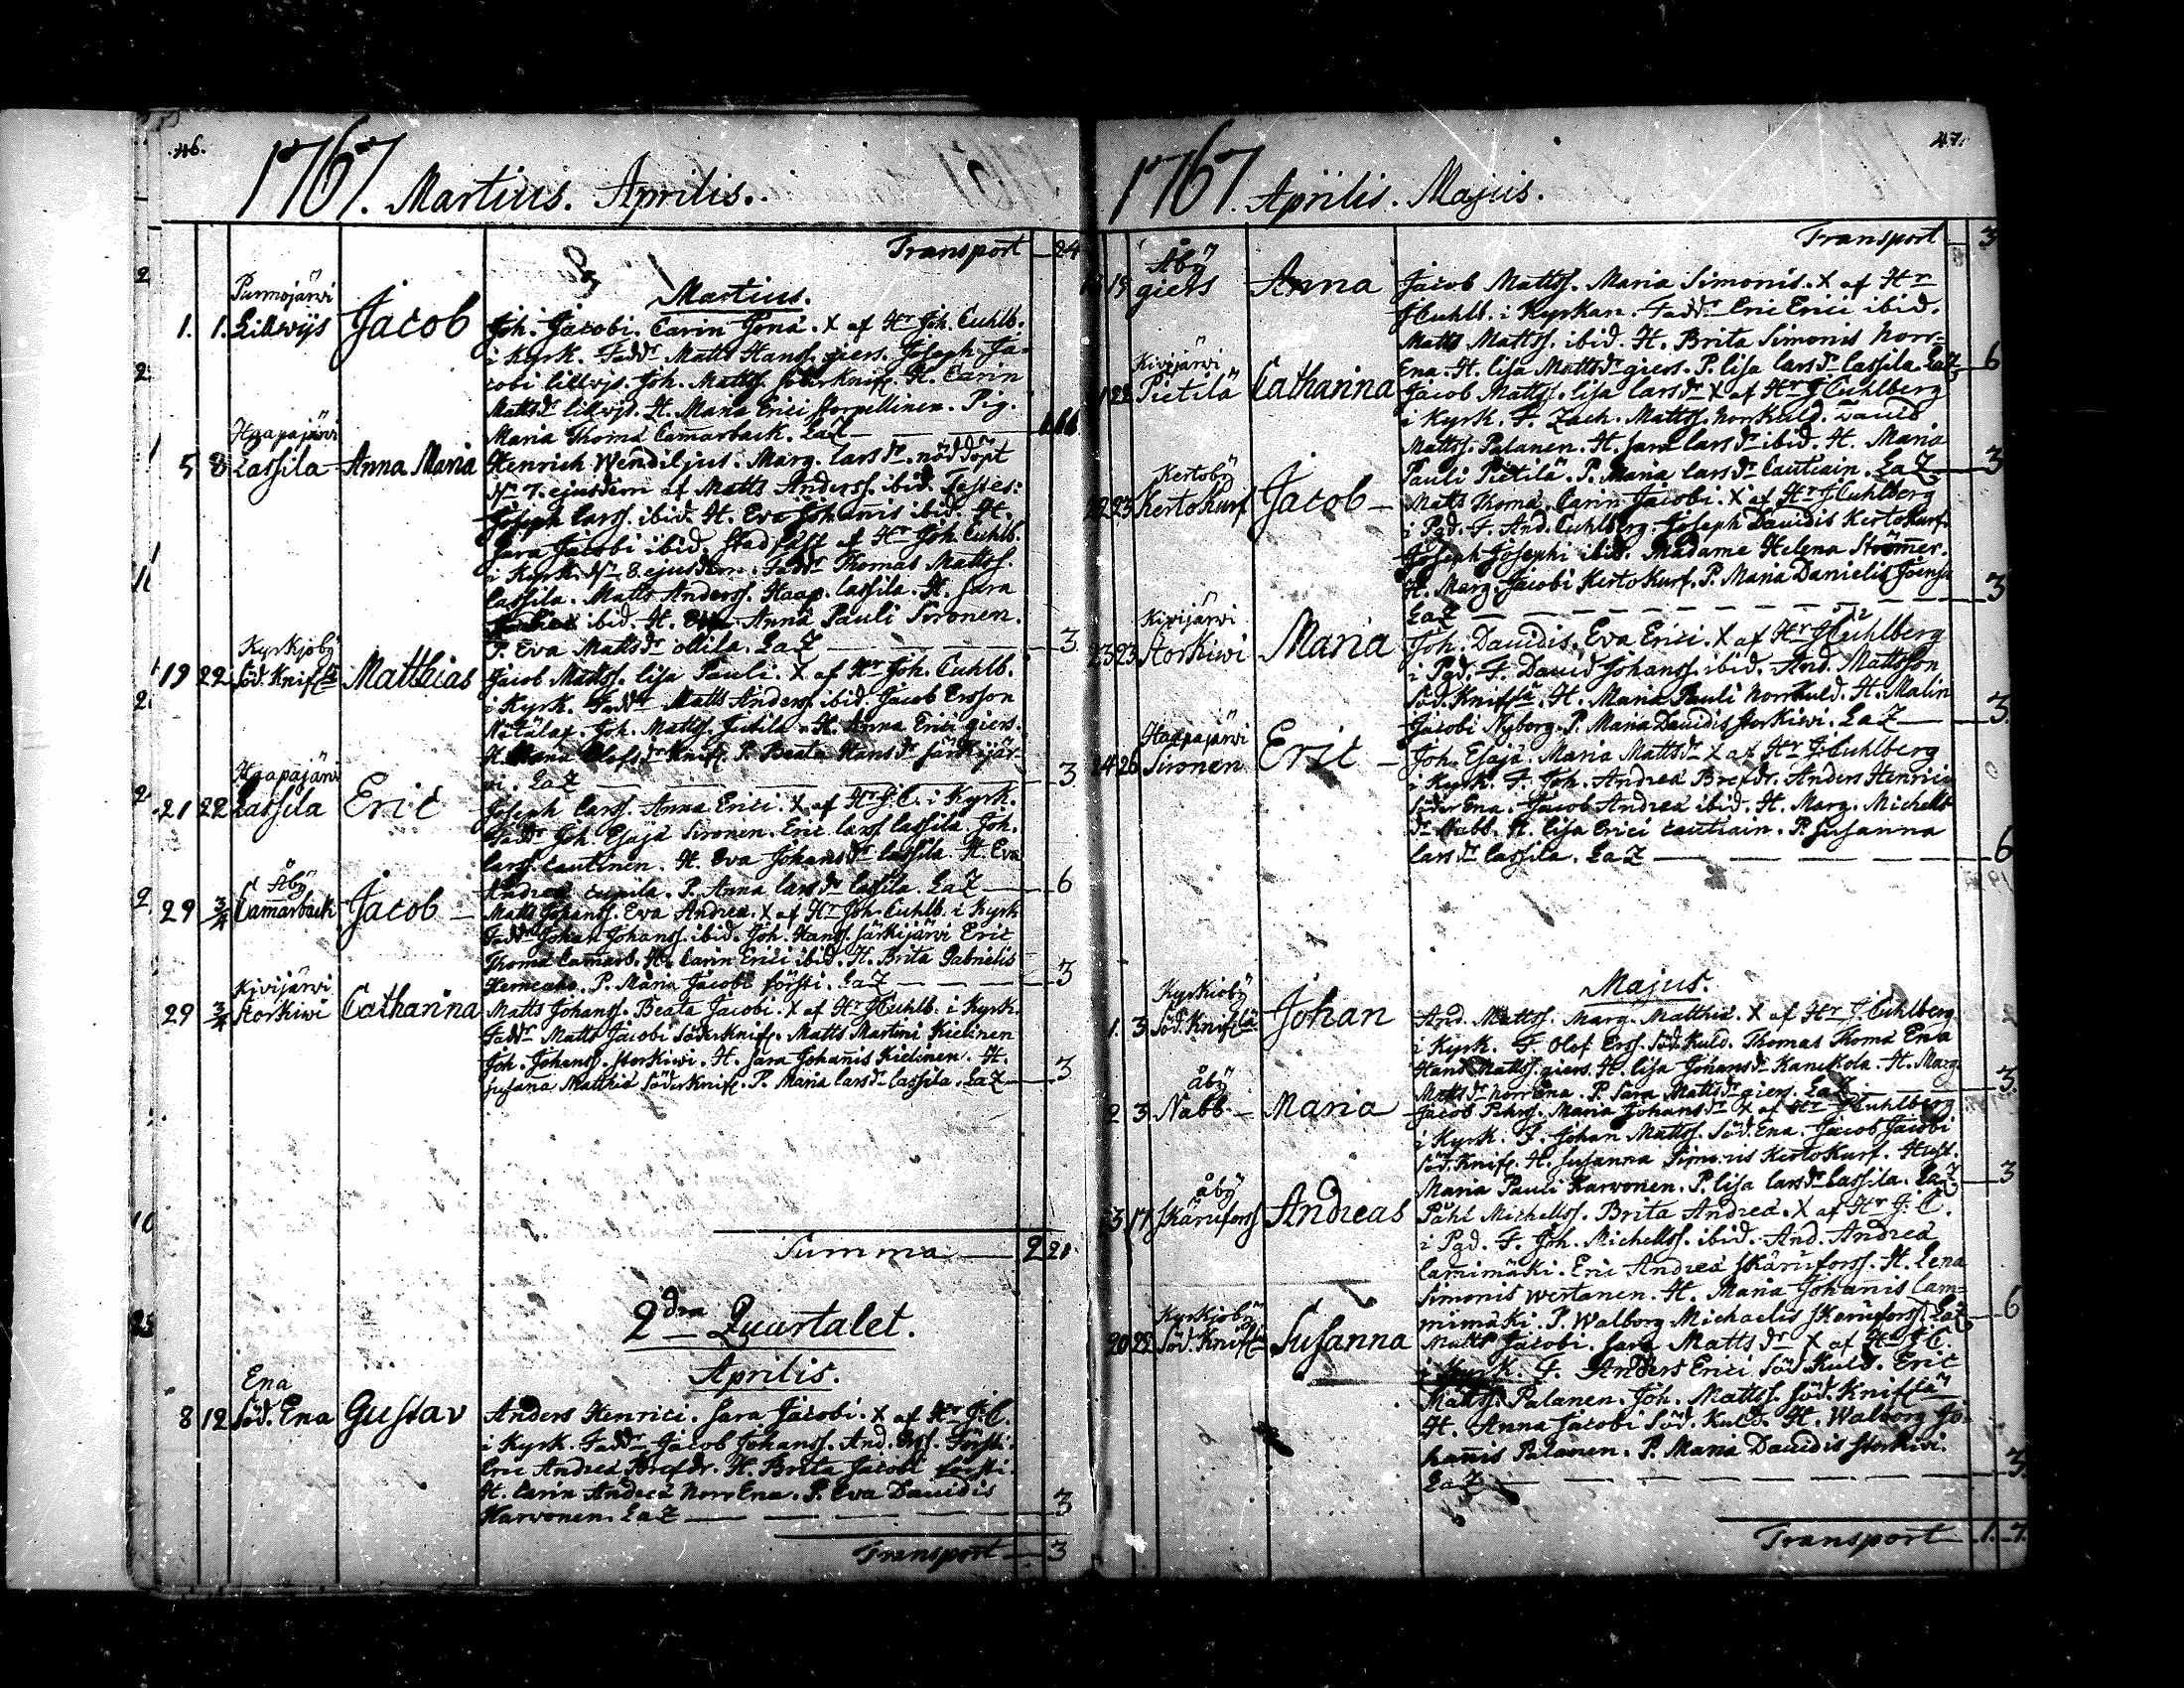 46.
1767. Martius. Aprilis.
Transport 24
Martius.
Purmojärvi
1. 1. Lillwijs Jacob Joh. Jacobi. Carin Jonæ. X af Hr Joh. Cuhlb.
i Kyrk. Faddr Matts Hanss. giers. Joseph Ja-
cobi lillwjs. Joh. Mattss. H. Carin
Mattsdr lillwjs. H. Maria Erici storpellinen. Pig.
Maria Thomæ Camarback. LaZ
Haapajärvi
5 8 Lassila Anna Maria Henrich Wendiljus. Marg. Larsdr. nöddöpt
dn 7. ejusdem af Matts Anderss. ibid. Testes:
Joseph Larss. ibid. H. Eva Johanis ibid. H.
Sara Jacobi ibid. Stadfäst af Hr Joh. Cuhlb.
i Kyrk. dn 8 ejusdem. Faddr Thomas Mattss.
Lassila. Matts Anderss. Haap. Lassila. H. Sara
ibid. H. Anna Pauli Sironen.
P. Eva Mattsdr ollila. LaZ 3
Kyrkjoby
19 22 Söd. Kniflä Matthias Jacob Mattss. lisa Pauli. X af Hr Joh. Cuhlb.
i Kyrk. Faddr Matts Anderss ibid. Jacob Ersson
Joh. Mattss. Jutila. H. Anna Erici giers.
H. Maria Olofsdr Knifl. P. Beata Hansdr särkijär-
vi. LaZ 3
Haapajärvi
21 22 Lassila Eric Joseph Larss. Anna Erici. X af Hr J. C. i Kyrk.
Faddr Joh. Esajæ Sironen. Eric Larss Lassila. Joh.
Larss. cautinen. H. Eva Johansdr Lassila. H. Eva
Andreæ P. Anna Larsdr Lassila. LaZ 6
Åby
29 3/4 Camarback Jacob Matts Johanss. Eva Andreæ. X af Hr Joh. Cuhlb. i Kyrk
Faddr Johan Johanss. ibid. Joh. Hanss. Särkijärvi Eric
Thomæ Camarb. H. Carin Erici ibid. H. Brita Gabrielis
P. Maria Jacobi försti. LaZ 3
Kivijärvi
29 3/4 Storkiwi Catharina Matts Johanss. Beata Jacobi. X af Hr J Cuhlb. i Kyrk.
Faddr Matts Jacobi Söderknifl. Matts Martini Kielinen
Joh. Johanss. Storkiwi. H. Sara Johanis Kielinen. H.
Susana Matthiæ Söderknifl. P. Maria Larsdr Lassila. LaZ 3
Summa 2 21
2dra Quartalet.
Aprilis.
Ena
8 12 Söd. Ena Gustav Anders Henrici. Sara Jacobi. X af Hr J. C.
i Kyrk. Faddr Jacob Johanss. And. Erss. Försti.
Eric Andreæ Brefdr. H. Brita Jacobi försti.
H. Carin Andreæ Norr Ena. P. Eva Davidis
Karvonen. LaZ 3
Transport 3
47.
1767. Aprilis. Majus.
Transport 3
Åby
19 giers Anna Jacob Mattss. Maria Simonis. X af Hr
J Cuhlb. i Kyrkan. Faddr Eric Erici ibid.
Matts Mattss. ibid. H. Brita Simonis Norr-
Ena. H. lisa Mattsdr giers. P. lisa Larsdr Lassila. LaZ 6
Kivijärvi
22 Pietilä Catharina Jacob Mattss. lisa Larsdr X af Hr J Cuhlberg
i Kyrk. F. Zach. Mattss. Norkuld. David
Mattss. Palanen. H. Sara Larsdr ibid. H. Maria
Pauli Pietilä. P. Maria Larsdr Cautiain. LaZ 3
Kertoby
22 23 Kertokurf Jacob Matts Thomæ. Carin Jacobi. X af Hr J Cuhlberg
i Pgd. F. And. Cuhlberg. Joseph Davidis Kertokurf.
Joseph Josephi ibid. Madame Helena Strömer.
H. Marg. Jacobi Kertokurf. P. Maria Danielis
LaZ 3
Kivijärvi
23 23 Storkiwi Maria Joh. Davidis. Eva Erici. X af Hr J Cuhlberg
i Pgd. F. David Johanss. ibid. And. Mattsson
Söd. Kniflä. H. Maria Pauli Norrkuld. H. Malin
Jacobi Nyborg. P. Maria Davidis Storkiwi. LaZ 3.
Haapajärvi
24 26 Sironen Eric Joh. Esajæ. Maria Mattsdr X af Hr J. Cuhlberg
i Kyrk. F. Joh. Andreæ Brefdr. Anders Henrici
Söder Ena. Jacob Andreæ ibid. H. Marg. Michells
dr Nabb. H. lisa Erici cautiain. P. Susanna
Larsdr Lassila. LaZ 6
Majus.
Kyrkjoby
1. 3 Söd. Kniflä Johan And. Mattss. Marg. Matthiæ. X af Hr J. Cuhlberg
i Kyrk. F Olof Erss. Söd. Kuld. Thomas Thomæ Ena
Hans Mattss. giers. H. lisa Johansdr Kanekola. H. Marg.
Mattsdr Norr Ena. P. Sara Mattsdr giers. LaZ 3.
Åby
2 3. Nabb Maria Jacob Pehrs. Maria Johansdr X af Hr J Cuhlberg
i Kyrk. F. Johan Mattss. Söd. Ena. Jacob Jacobi
Söd. Knifl. H. Susanna Simonis Kertokurf. Hust.
Maria Pauli Karvonen. P. lisa Larsdr Lassila. LaZ 3
Åby
3 17 Skärufors Andreas Påhl Michellss. Brita Andreæ. X af Hr J. C.
i Pgd. F. Joh. Michellss. ibid. And. Andreæ
Camimäki. Eric Andreæ Skärufors. H. Lena
Simonis Wertanen. H. Maria Johanis Cam-
mimäki. P. Walborg Michaelis Skärufors. LaZ 6
Kyrkjoby
20 22 Söd. Kniflä Susanna Matts Jacobi. Sara Mattsdr X af Hr J. C.
i Kyrk. F. Anders Erici Söd. Kuld. Eric
Mattss. Palanen. Joh. Mattss. Söd. Kniflä
H. Anna Jacobi Söd. Kuld. H. Walborg Jo-
hannis Palanen. P. Maria Davidis Storkiwi.
LaZ 3.
Transport 1. 7.